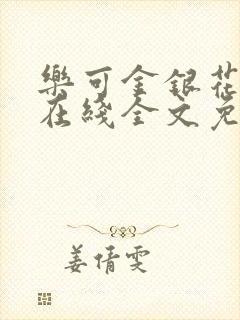 樂可金銀花
在綫全文免
姜倩雯